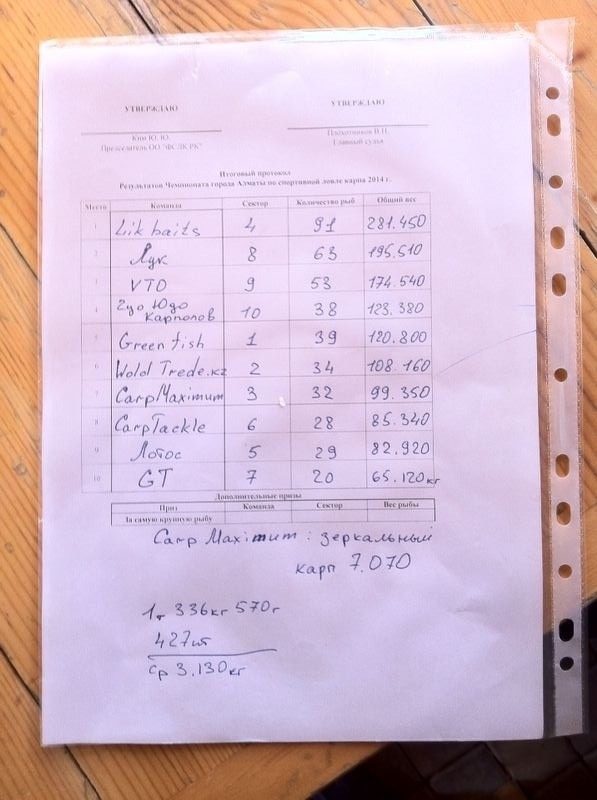 УТВЕРЖДАЮ УТВЕРЖДАЮ
Ким Ю. Ю. Плохотников В.Н.
Председатель ОО "ФСЛК РК" Главный судья
Итоговый протокол
Результатов Чемпионата города Алматы по спортивной ловле карпа 2014 г.
Место Команда Сектор Количество рыб Общий вес
1 Lik baits 4 91 281.450
2 Лук 8 63 195.510
3 VTO 9 53 174.540
4 Чудо Юдо Карполов 10 38 123.380
5 Green fish 1 39 120.800
6 Wold Trede.kz 2 34 108.160
7 CarpMaximum 3 32 99.350
8 CarpTackle 6 28 85.340
9 Лотос 5 29 82.920
10 GT 7 20 65.120кг
Дополнительные призы
Приз Команда Сектор Вес рыбы
За самую крупную рыбу
Carp Maximum: зеркальный
карп 7.070
1т 336кг 570г
427шт
ср 3.130кг